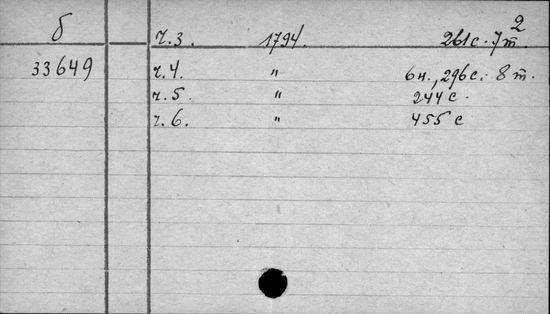 2
б ч.3. 1794. 261с. 7т.
33649 ч.4. " 6н., 296с. 8т.
ч.5. " 244с.
ч.6. " 455с